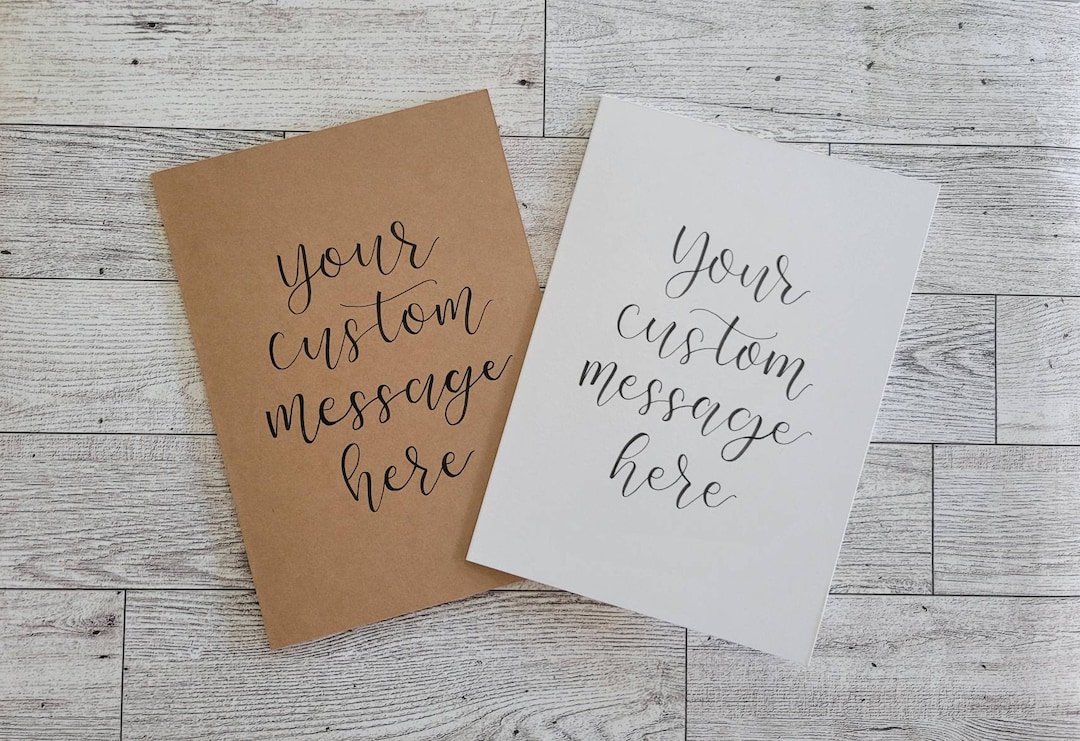 your
custom
message
here
your
custom
message
here